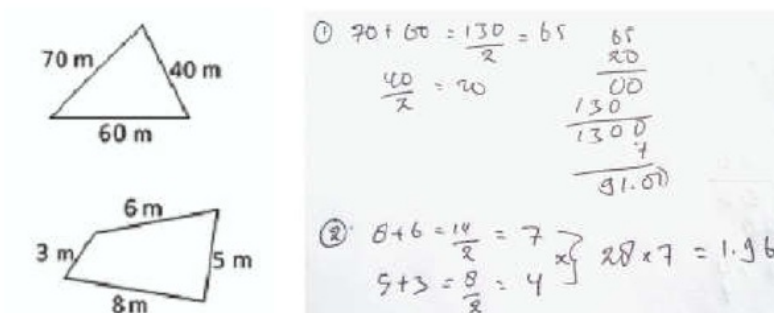 70 m
40 m
60 m
6 m
3 m
5 m
8 m
① 70 + 60 = 130/2 = 65
40/2 = 20
65
20
00
130
1300
7
91.00
② 8+6 = 14/2 = 7
5+3 = 8/2 = 4
x} 28 x 7 = 1.96